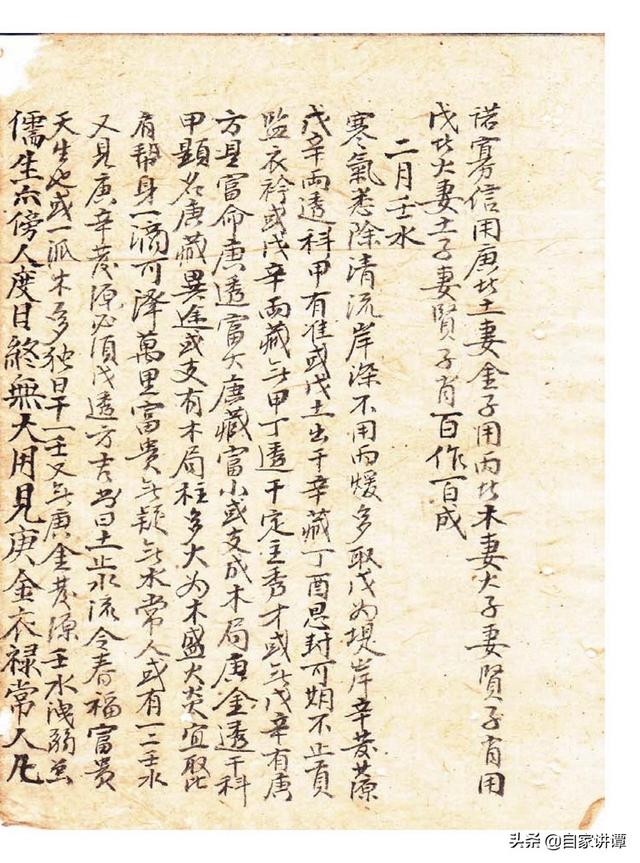 诺寡信用庚此土妻金子用丙此木妻火子妻賢子肖用
戊此火妻土子妻賢子肖百作百成
二月壬水
寒氣悉除清流岸深不用丙煖多取戊为堤岸辛發源
戊辛両透科甲有准或戊土出干辛藏丁酉恩封可期不止貢
監衣衿或戊辛両藏此甲丁透干定主秀才或此戊辛有庚
方是富命庚透富大庚藏富小或支成木局庚金透干科
甲題名庚藏異途或支有木局柱多火为木盛火炎宜取比
肩帮身一滴可泽萬里富貴此疑此水常人或有一二壬水
又見庚辛發源必須戊透方吉書曰土止水流全春福富貴
天生也或一派木多独日干一壬又此庚金發源壬水洩弱並
儒生六傍人度日終無大用見庚金衣禄常人凡
头条 @自家讲谭